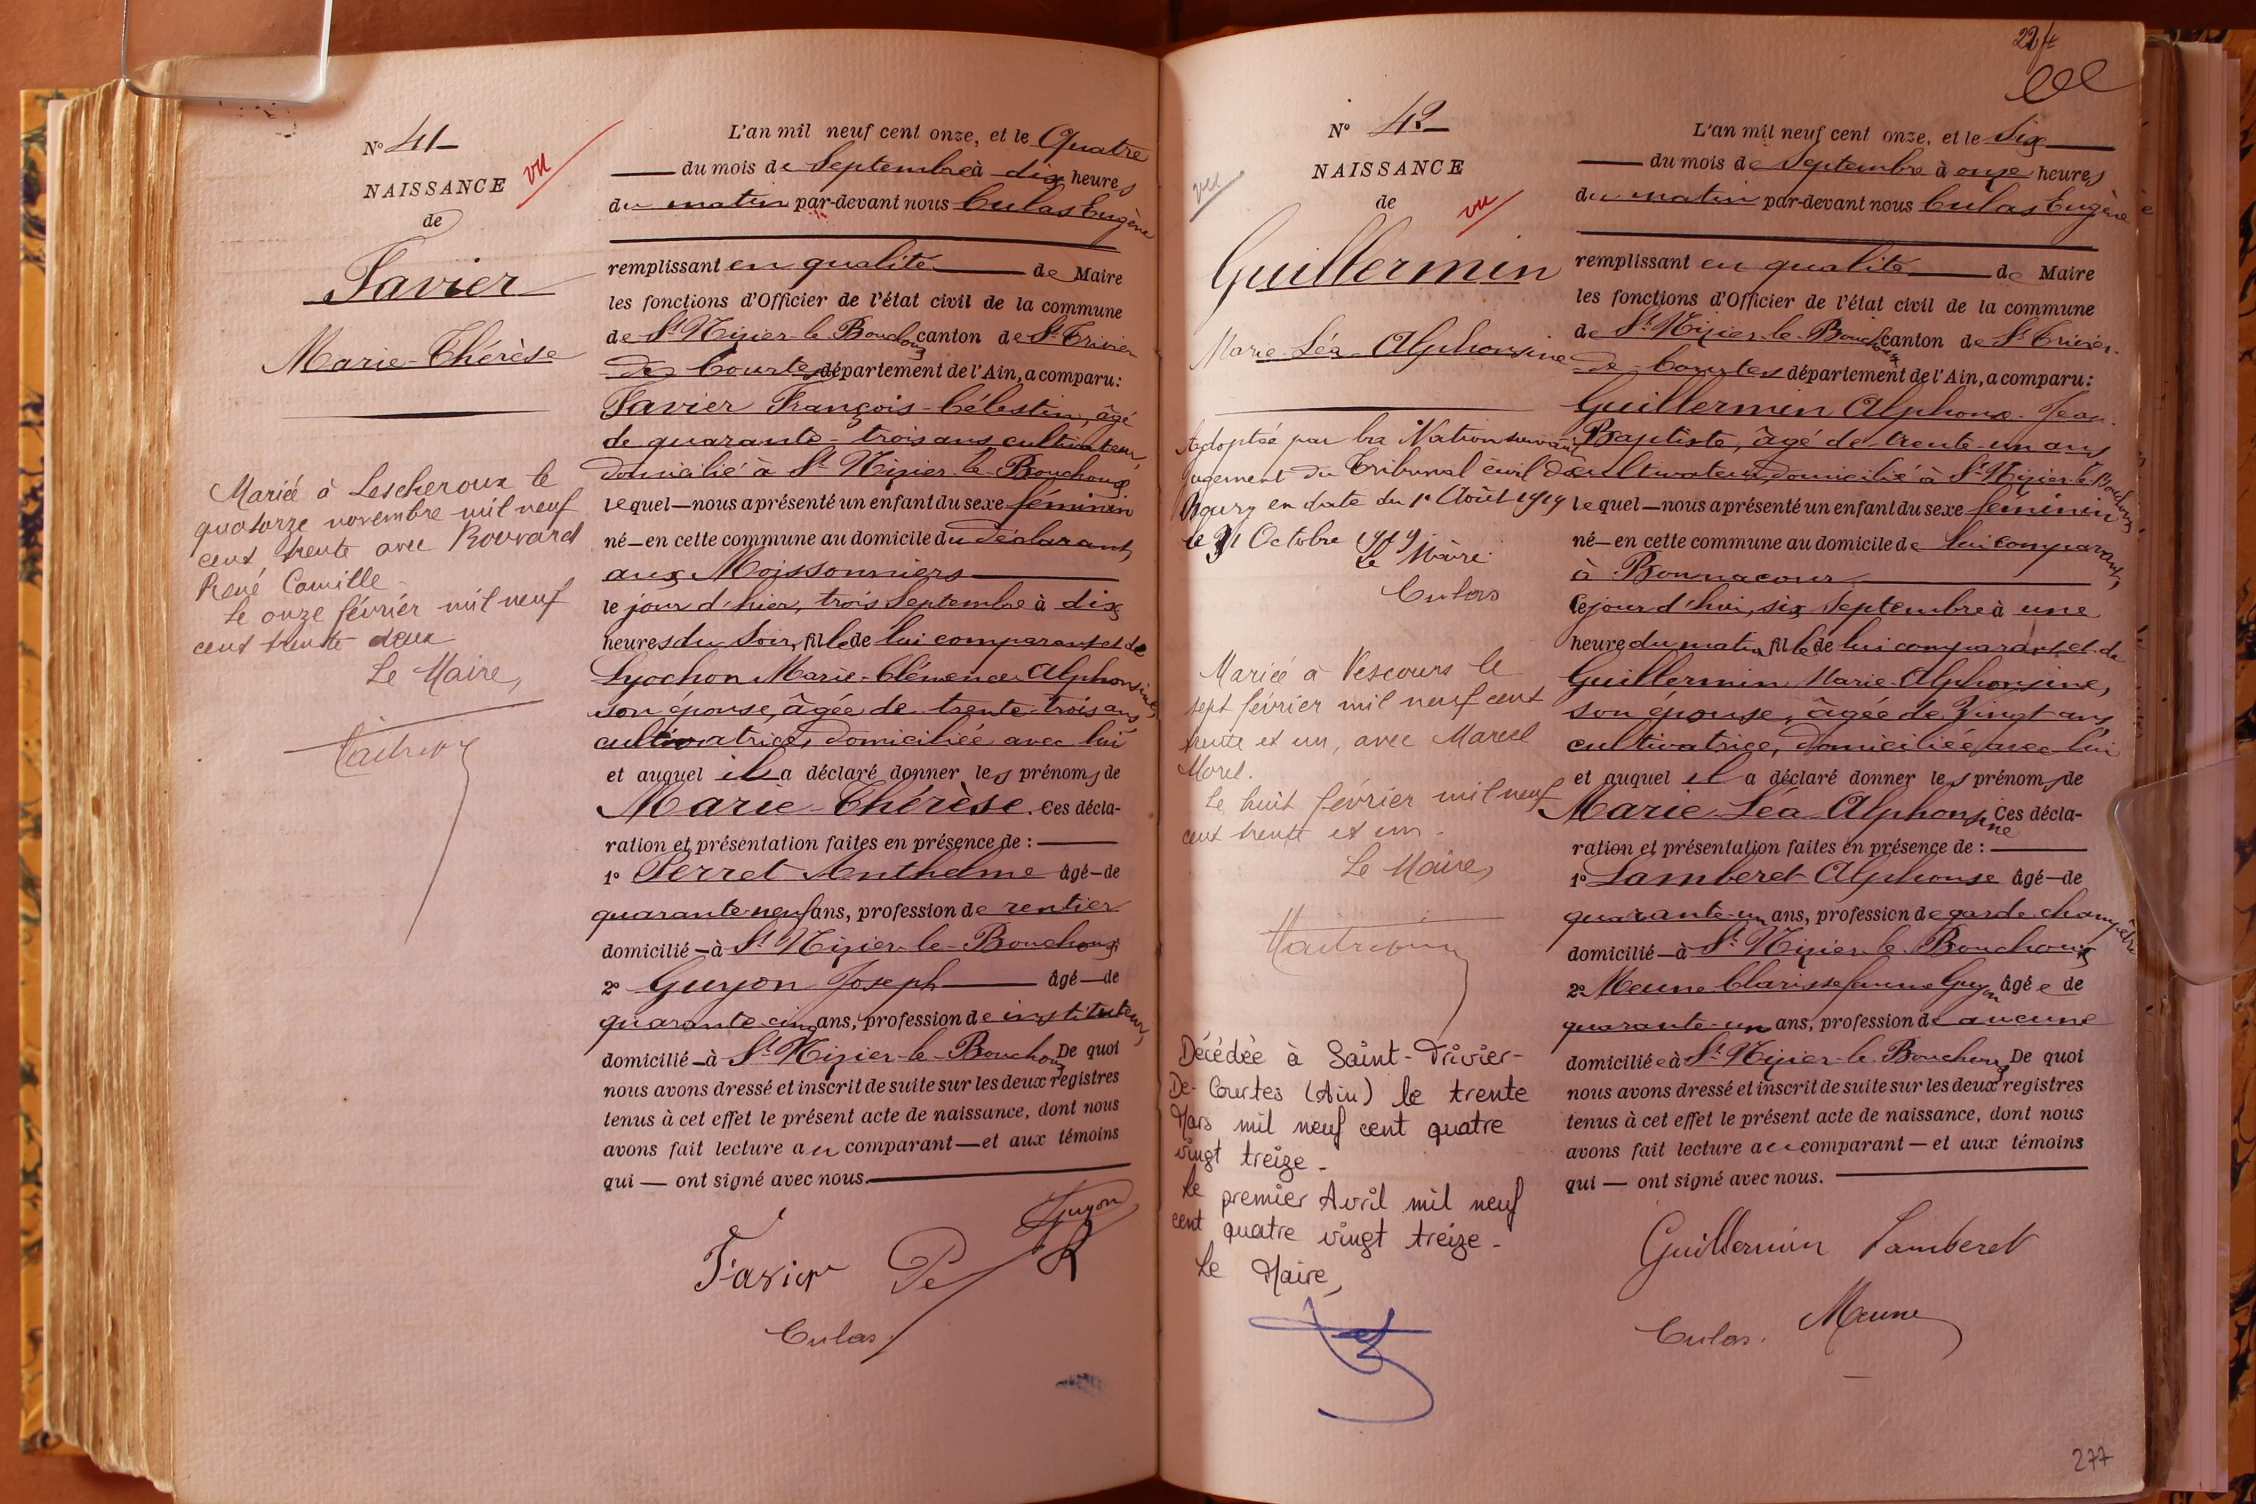 N° 41
NAISSANCE
de
Favier
Marie-Thérèse
vu
Mariée à Lescheroux le
quatorze novembre mil neuf
cent trente avec Rouvard
René Camille
Le onze février mil neuf
cent trente deux
Le Maire,
L'an mil neuf cent onze, et le Quatre
du mois de Septembre à dix heures
du matin par-devant nous Culas Eugène
remplissant en qualité de Maire
les fonctions d'Officier de l'état civil de la commune
de St Nizier-le-Bouchoux canton de St Trivier
de Courtes département de l'Ain, a comparu:
Favier François-Célestin, âgé
de quarante-trois ans, cultivateur,
domicilié à St Nizier-le-Bouchoux
lequel—nous a présenté un enfant du sexe féminin
né—en cette commune au domicile du déclarant,
aux Moissonniers
le jour d'hier, trois Septembre à dix
heures du soir, fille de lui comparant et de
Lyochon Marie-Clémence Alphonsine,
son épouse, âgée de trente-trois ans,
cultivatrice, domiciliée avec lui
et auquel il a déclaré donner les prénoms de
Marie-Thérèse. Ces décla-
ration et présentation faites en présence de :
1° Perret Anthelme âgé—de
quarante-neuf ans, profession de rentier
domicilié—à St Nizier-le-Bouchoux
2° Guyon Joseph âgé—de
quarante-cinq ans, profession de instituteur,
domicilié—à St Nizier-le-Bouchoux De quoi
nous avons dressé et inscrit de suite sur les deux registres
tenus à cet effet le présent acte de naissance, dont nous
avons fait lecture au comparant—et aux témoins
qui — ont signé avec nous.
Guyon
Favier
Culas.
224
N° 42
NAISSANCE
de
vu
vu
Guillermin
Marie-Léa-Alphonsine
Adoptée par la Nation suivant
jugement du Tribunal civil de
Bourg en date du 1r Août 1919
le 31 Octobre 1919
Le Maire
Culas
Mariée à Vescours le
sept février mil neuf cent
trente et un, avec Marcel
Morel.
Le huit février mil neuf
cent trente et un.
Le Maire,
Décédée à Saint-Trivier-
De-Courtes (Ain) le trente
Mars mil neuf cent quatre
vingt treize -
Le premier Avril mil neuf
cent quatre vingt treize -
Le Maire,
L'an mil neuf cent onze, et le Six
du mois de Septembre à onze heures
du matin par-devant nous Culas Eugène
remplissant en qualité de Maire
les fonctions d'Officier de l'état civil de la commune
de St Nizier-le-Bouchoux canton de St Trivier-
de Courtes département de l'Ain, a comparu:
Guillermin Alphonse-Jean-
Baptiste, âgé de trente-un ans
cultivateur, domicilié à St Nizier-le-Bouchoux
lequel—nous a présenté un enfant du sexe féminin
né—en cette commune au domicile de lui comparant,
à Bonnacour
le jour d'hui, six Septembre à une
heure du matin fille de lui comparant et de
Guillermin Marie-Alphonsine,
son épouse, âgée de vingt ans,
cultivatrice, domiciliée avec lui
et auquel il a déclaré donner les prénoms de
Marie-Léa-Alphonsine Ces décla-
ration et présentation faites en présence de :
1° Lamberet Alphonse âgé—de
quarante-un ans, profession de garde-champêtre
domicilié—à St Nizier-le-Bouchoux
2° Meune Clarisse femme Guyon âgée de
quarante-un ans, profession de aucune
domiciliée à St Nizier-le-Bouchoux De quoi
nous avons dressé et inscrit de suite sur les deux registres
tenus à cet effet le présent acte de naissance, dont nous
avons fait lecture au comparant—et aux témoins
qui — ont signé avec nous.
Guillermin Lamberet
Culas. Meune
277